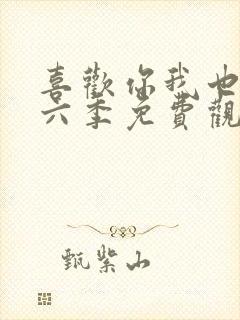 喜歡你我也
六季免費觀
甄紫山